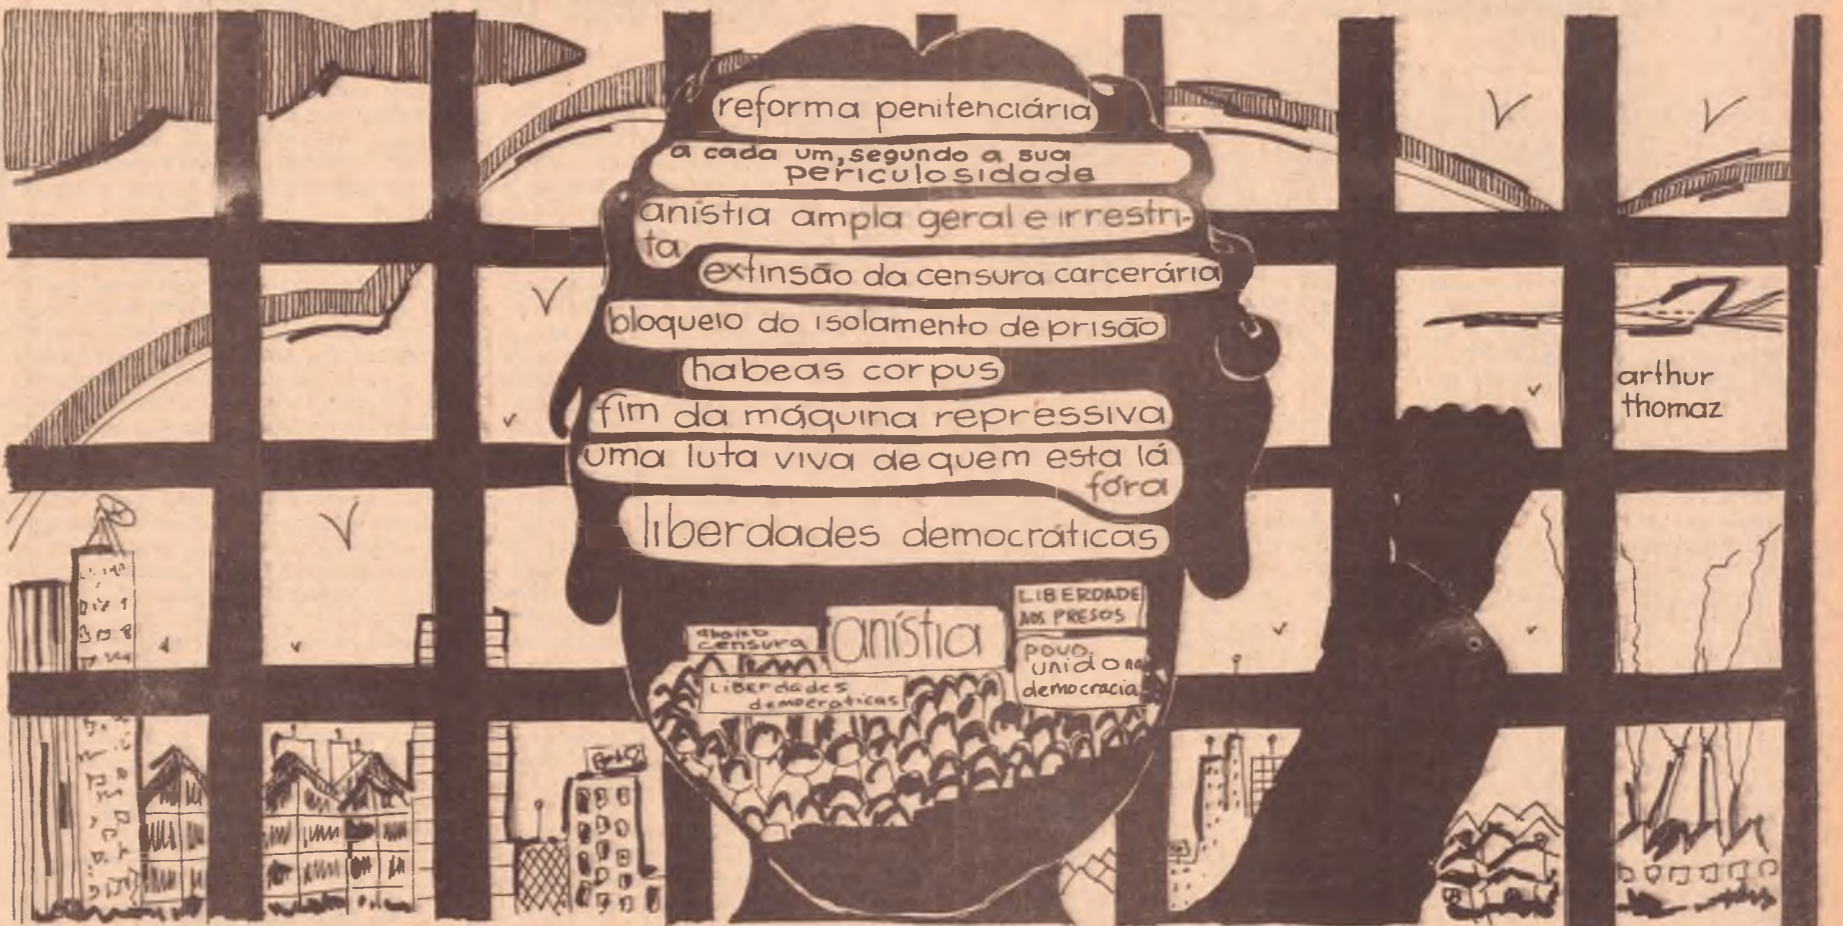 reforma penitenciária
a cada um, segundo a sua
periculosidade
anístia ampla geral e irrestri-
ta
extinsão da censura carcerária
bloqueio do isolamento de prisão
habeas corpus
fim da máquina repressiva
uma luta viva de quem esta lá
fóra
liberdades democráticas
arthur
thomaz
LIBERDADE
AOS PRESOS
abaixo
censura
anístia
povo
unido na
democracia
LIBERdades
democraticas